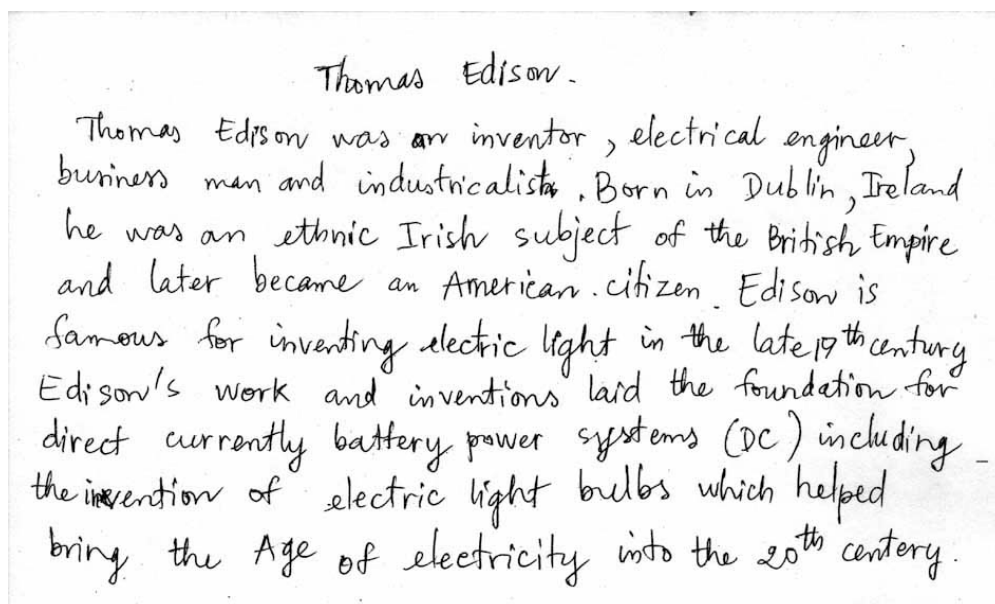 Thomas Edison.
Thomas Edison was an inventor, electrical engineer,
business man and industricalist. Born in Dublin, Ireland
he was an ethnic Irish subject of the British Empire
and later became an American citizen. Edison is
famous for inventing electric light in the late 19th century
Edison's work and inventions laid the foundation for
direct currently battery power systems (DC) including
the invention of electric light bulbs which helped
bring the Age of electricity into the 20th centery.